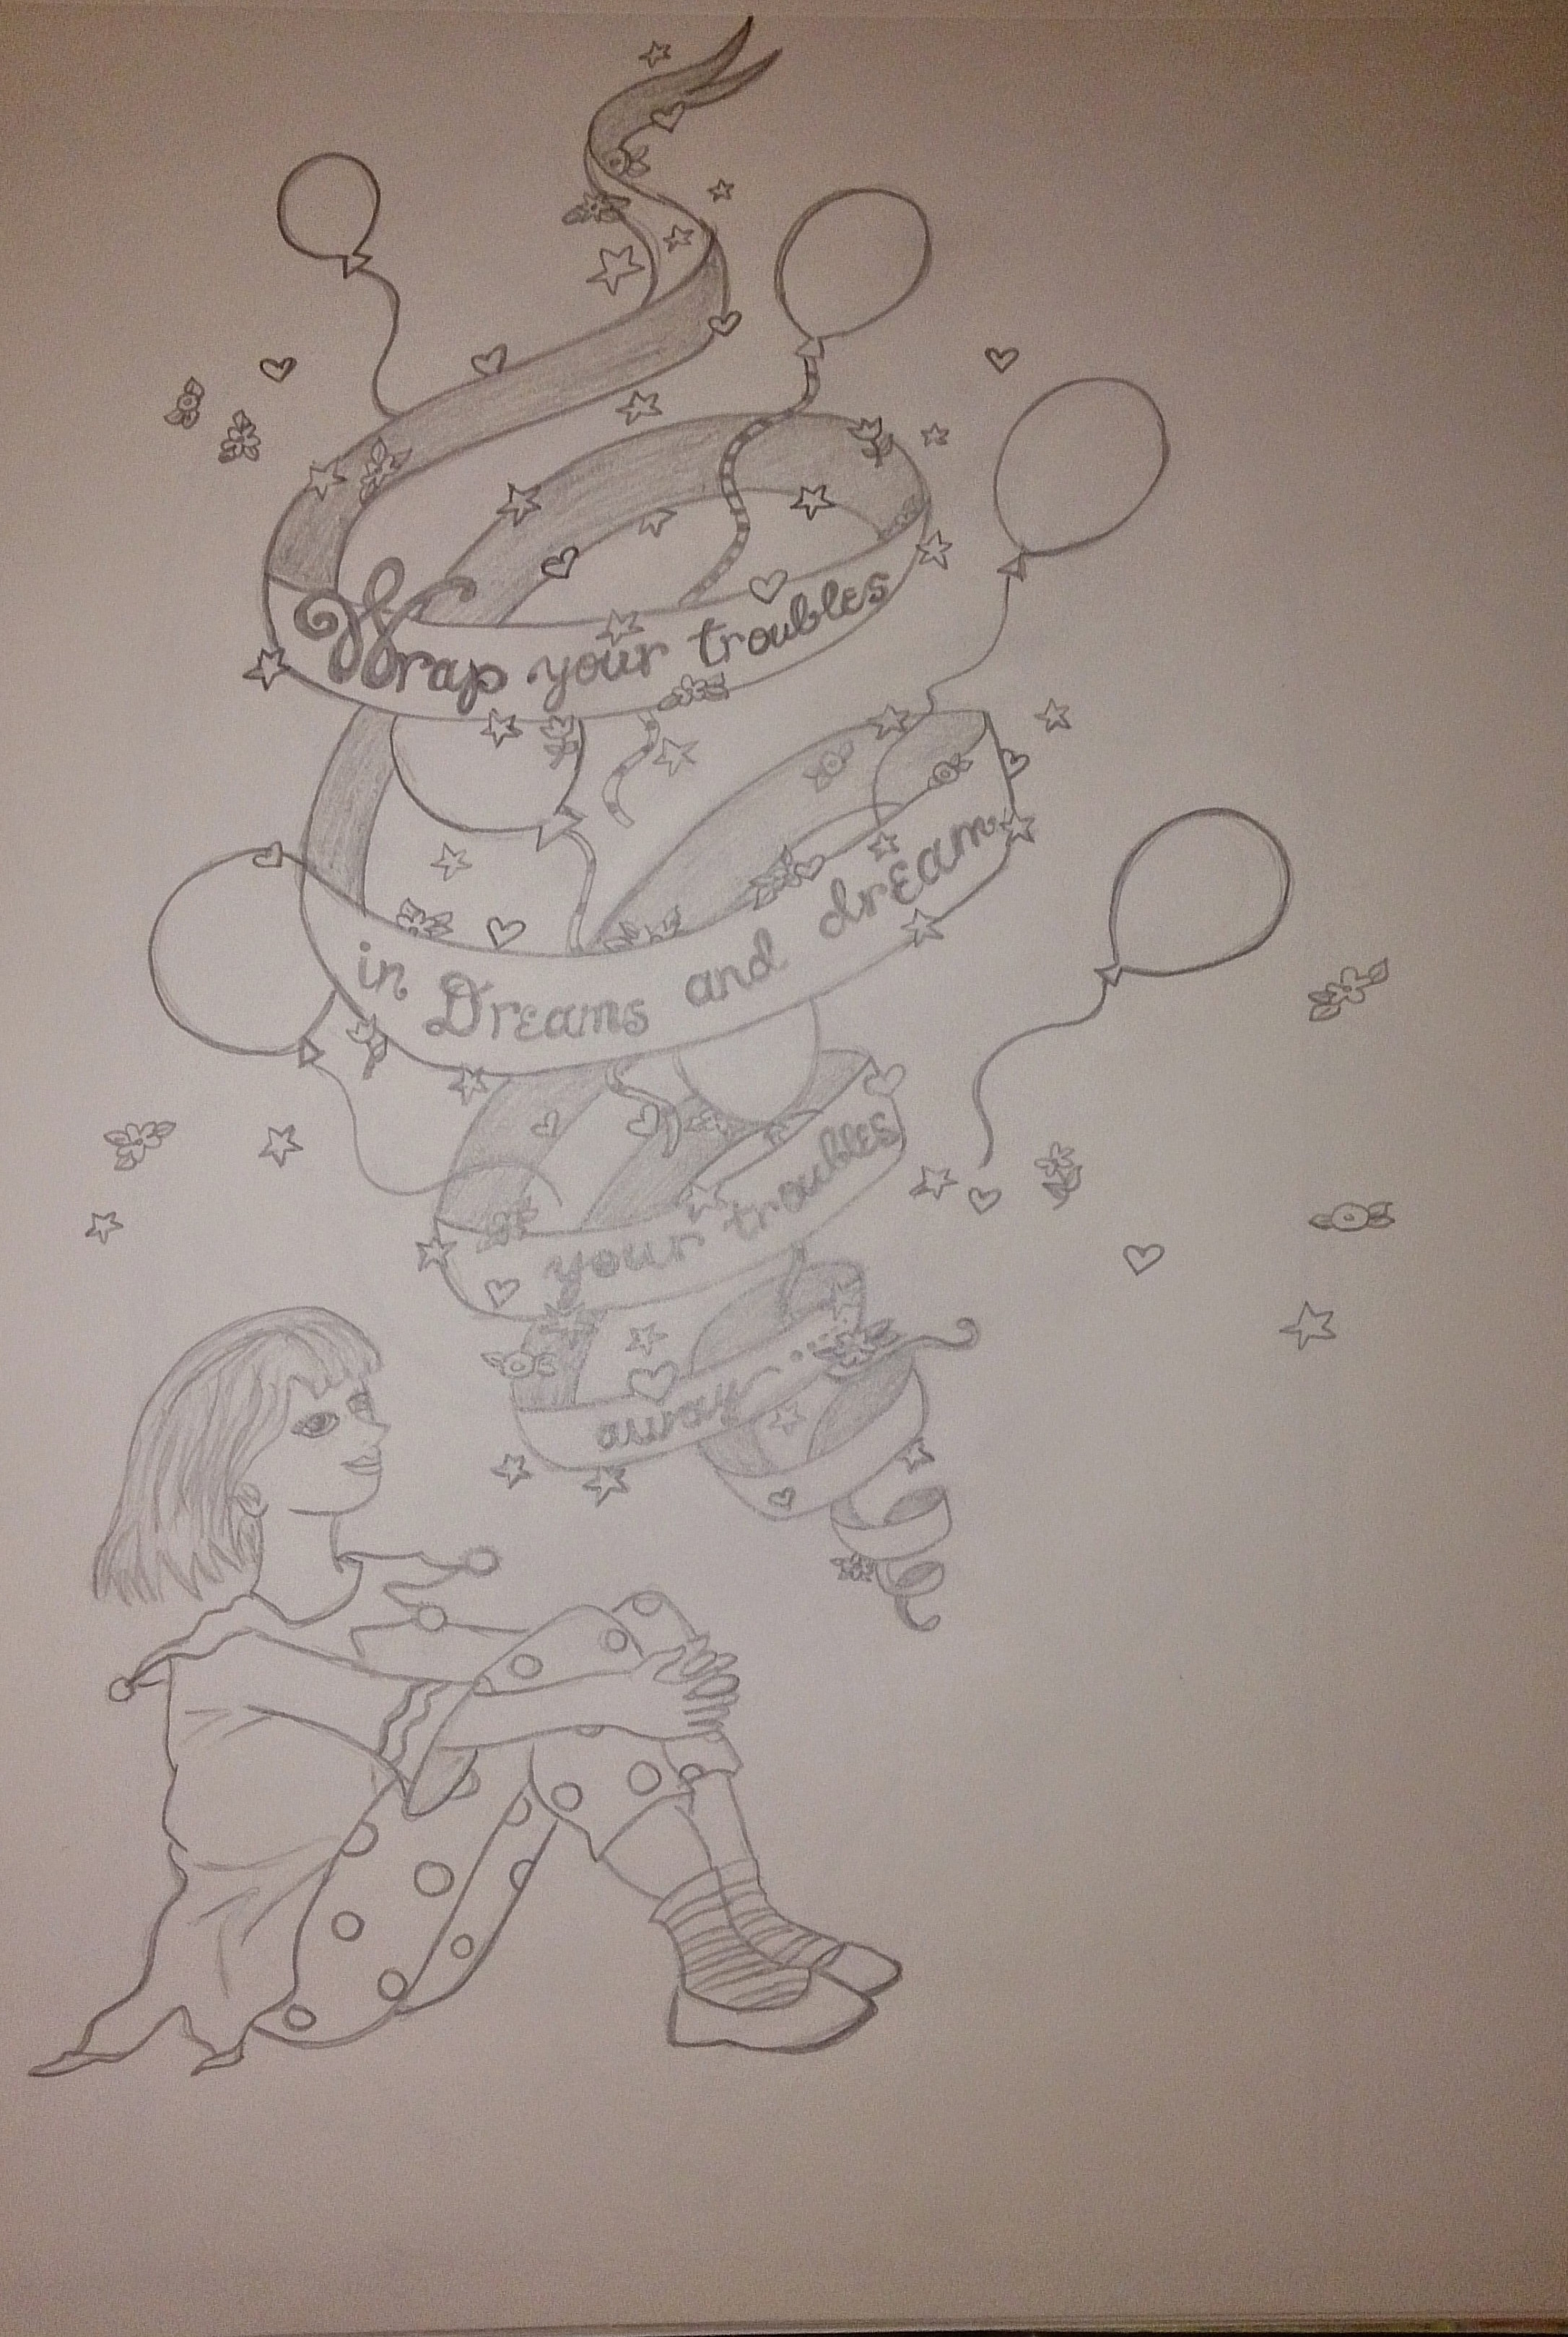 Wrap your troubles
in Dreams and dream
your troubles
away....